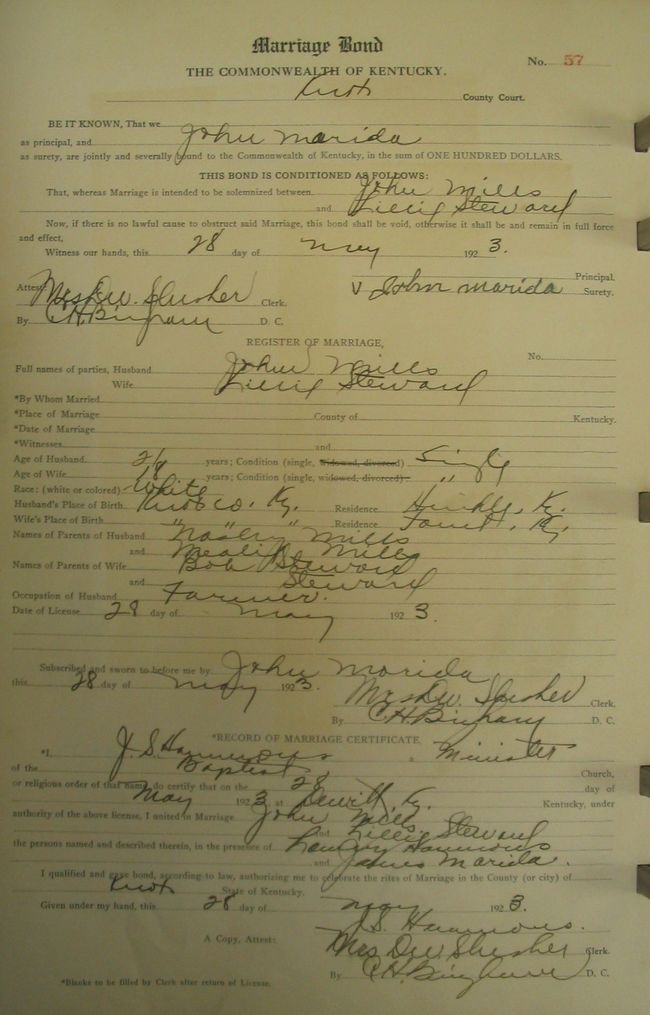 Marriage Bond
No. 57
THE COMMONWEALTH OF KENTUCKY.
Knox County Court.
BE IT KNOWN, That we
as principal, and John Marida
as surety, are jointly and severally bound to the Commonwealth of Kentucky, in the sum of ONE HUNDRED DOLLARS.
THIS BOND IS CONDITIONED AS FOLLOWS:
That, whereas Marriage is intended to be solemnized between John Mills
and Lillie Steward
Now, if there is no lawful cause to obstruct said Marriage, this bond shall be void, otherwise it shall be and remain in full force
and effect,
Witness our hands, this 28 day of May 1923.
Principal.
Attest: Mrs Dw. Slusher Clerk. John Marida Surety.
By C.H. Bingham D. C.
REGISTER OF MARRIAGE,
No.
Full names of parties, Husband John Mills
Wife Lillie Steward
*By Whom Married
*Place of Marriage County of Kentucky.
*Date of Marriage
*Witnesses and
Age of Husband 21 years; Condition (single, widowed, divorced) Single
Age of Wife 18 years; Condition (single, widowed, divorced) "
Race: (white or colored) White
Husband's Place of Birth Knox co. Ky. Residence Hinkle, Ky.
Wife's Place of Birth " " " Residence Fount, Ky
Names of Parents of Husband Mills
and Mills
Names of Parents of Wife Bob Steward
and Steward
Occupation of Husband Farmer.
Date of License 28 day of May 1923.
Subscribed and sworn to before me by John Marida
this 28 day of May 1923. Mrs Dw. Slusher Clerk.
By C.H. Bingham D. C.
*RECORD OF MARRIAGE CERTIFICATE.
*I, J. S. Hammons a Minister
of the Baptist Church,
or religious order of that name, do certify that on the 28 day of
May 1923 at Dewitt, Ky. Kentucky, under
authority of the above license, I united in Marriage John Mills
and Lillie Steward
the persons named and described therein, in the presence of Hammons
and James Marida.
I qualified and gave bond, according to law, authorizing me to celebrate the rites of Marriage in the County (or city) of
Knox State of Kentucky.
Given under my hand, this 28 day of May 1923.
J. S. Hammons.
A Copy, Attest: Mrs Dw Slusher Clerk.
By C.H. Bingham D. C.
*Blanks to be filled by Clerk after return of License.